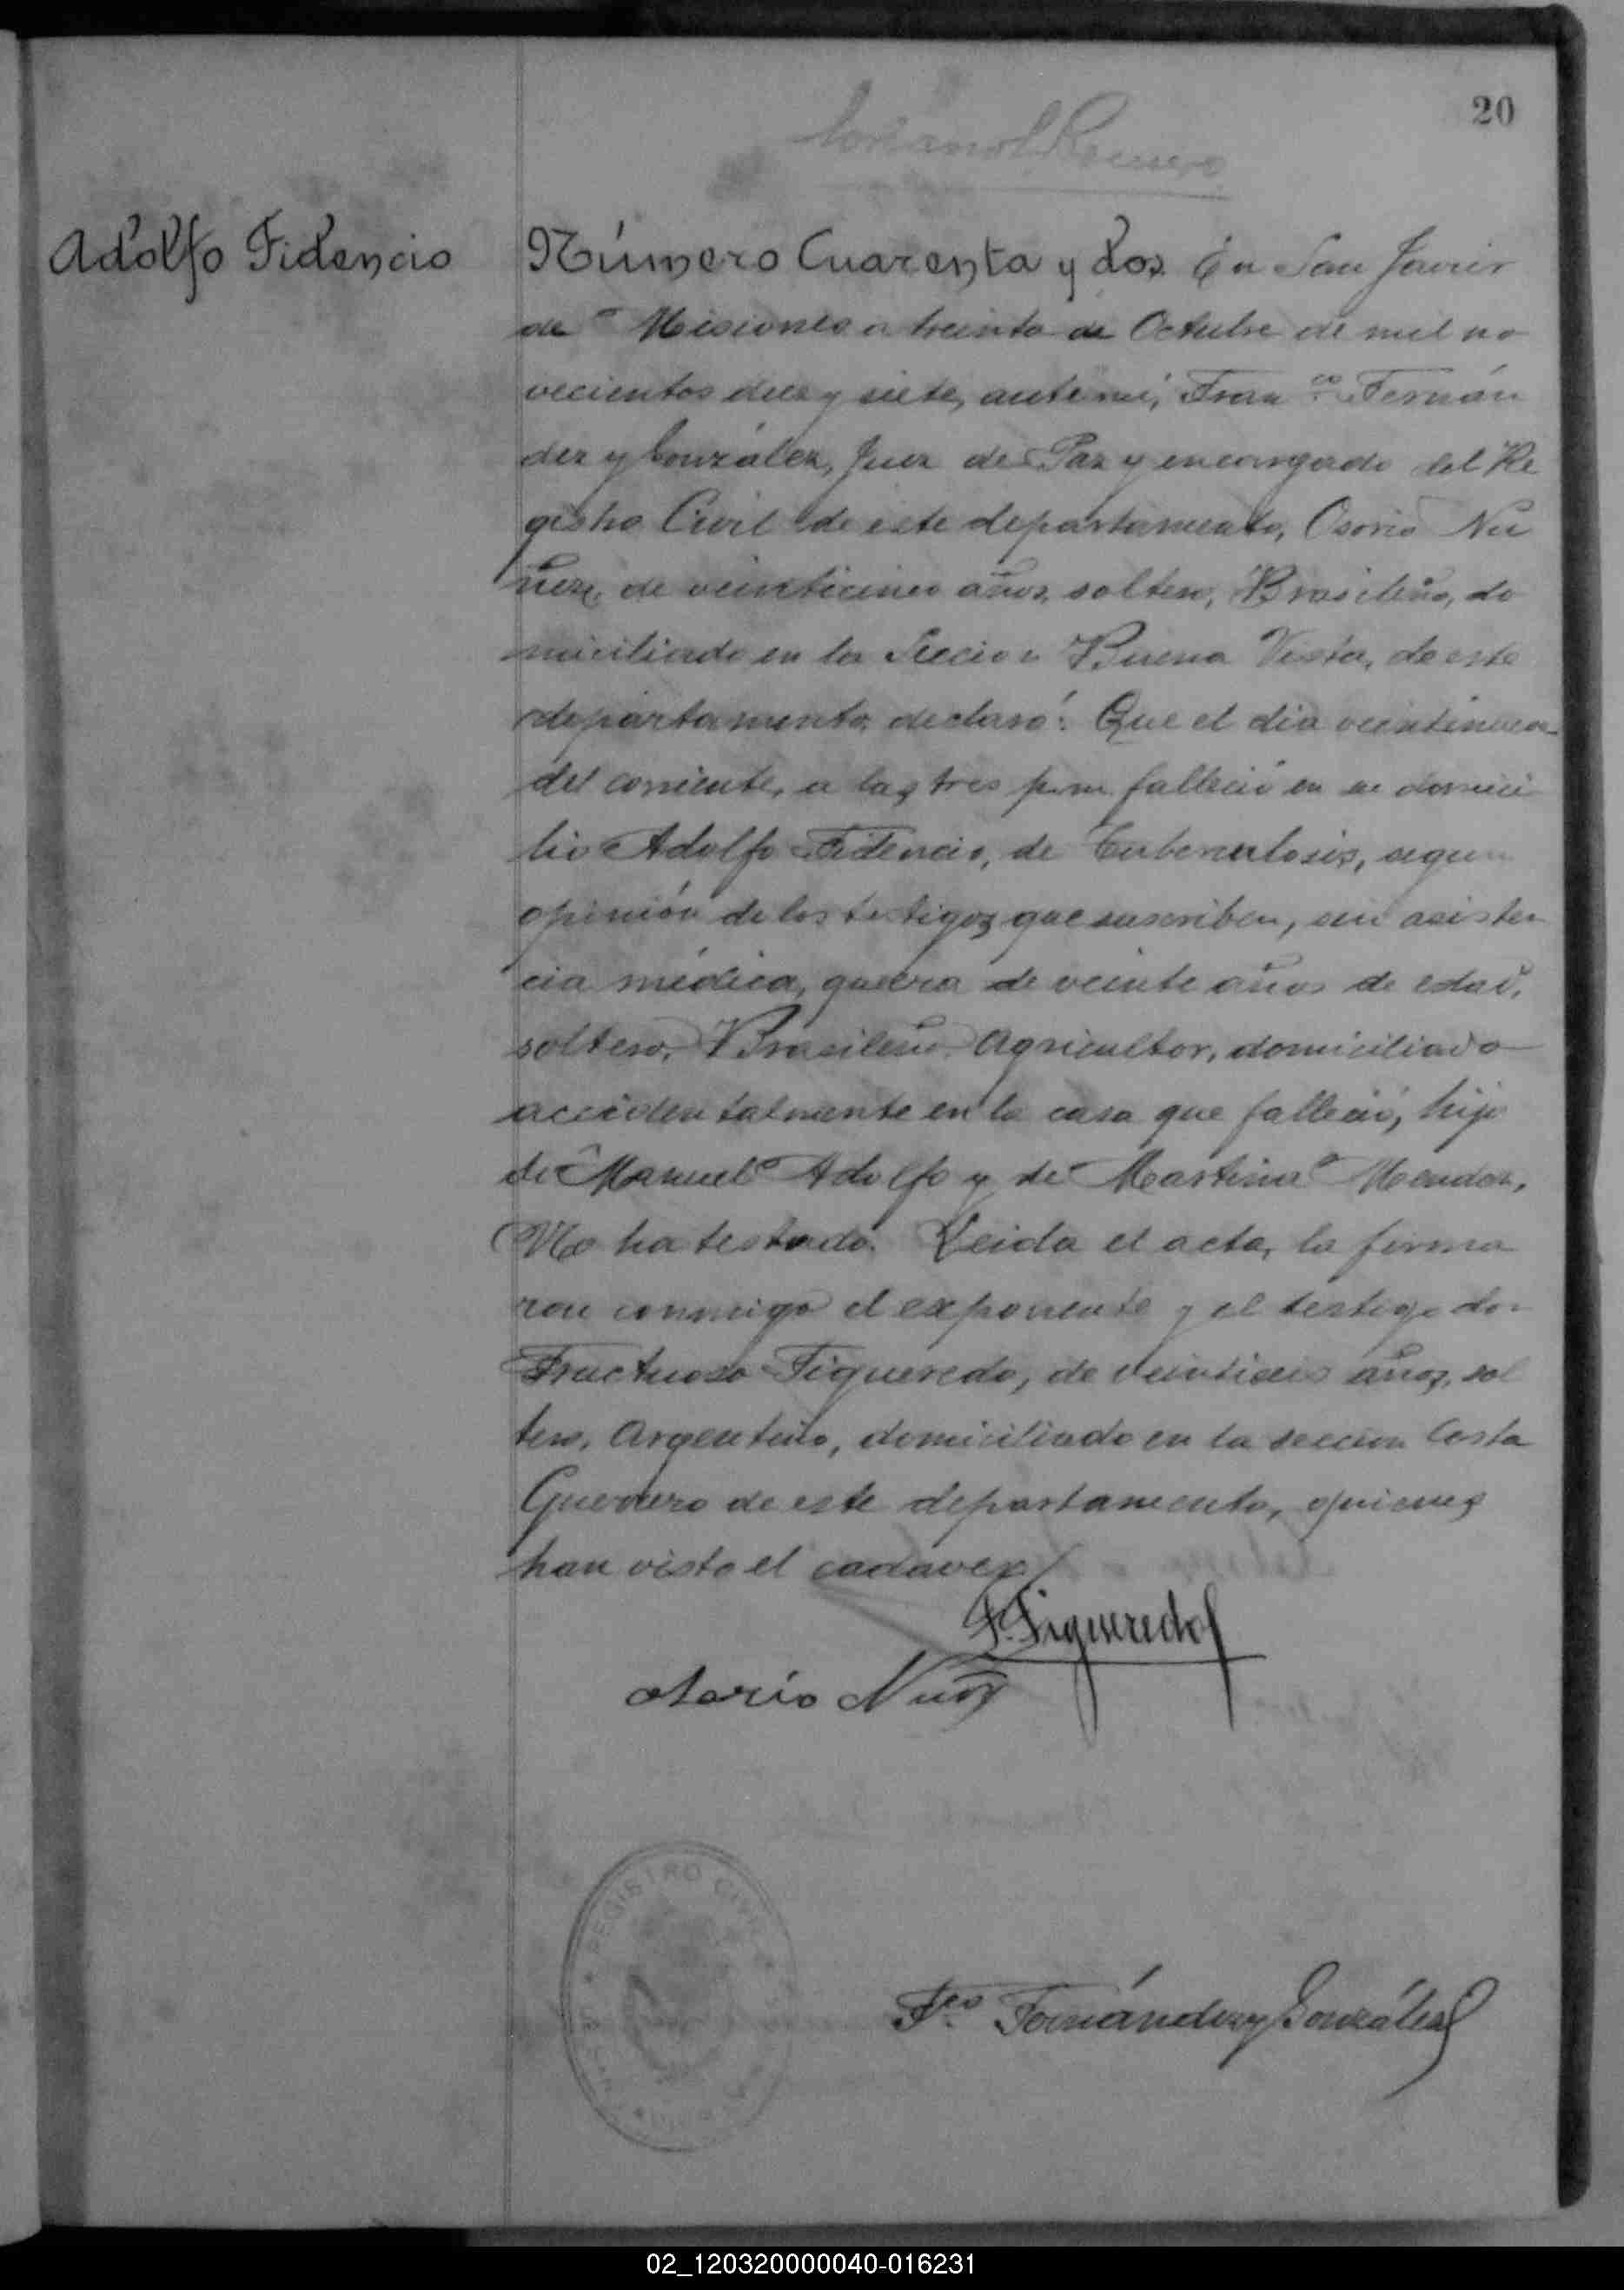 20
Adolfo Fidencio
Número Cuarenta y dos En San Javier
de Misiones a treinta de Octubre de mil no
vecientos diez y siete, ante mí, Fran.co Fernán
dez y González, Juez de Paz y encargado del Re
gistro Civil de este departamento, Osorio Nu
ñez, de veinticinco años, soltero, Brasileño, do
miciliado en la Seccion Buena Vista, de este
departamento, declaró: Que el dia veintinueve
del corriente, a las tres p.m. falleció en su domici
lio Adolfo Fidencio, de Tuberculosis, segun
opinión de los testigos que suscriben, sin asisten
cia médica, que era de veinte años de edad,
soltero, Brasileño, Agricultor, domiciliado
accidentalmente en la casa que falleció, hijo
de Manuel Adolfo y de Martina Mendez,
No ha testado. Leida el acta, la firma
ron conmigo el exponente y el testigo don
Fructuoso Figueredo, de veintiseis años, sol
tero, Argentino, domiciliado en la seccion Costa
Guerrero de este departamento, quienes
han visto el cadaver
F. Figueredo
Nuñz
REGISTRO CIVIL
F.co Fernández y González
02_120320000040-016231